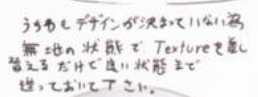 うちわもデザインが決まっていない為
無地の状態で、Textureを差し
替えるだけで良い状態まで
造っておいて下さい。